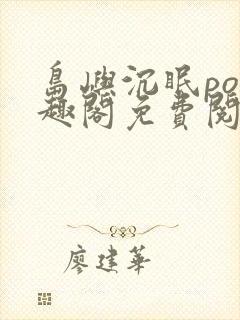 島嶼沉眠po
趣閣免費閱
廖建華